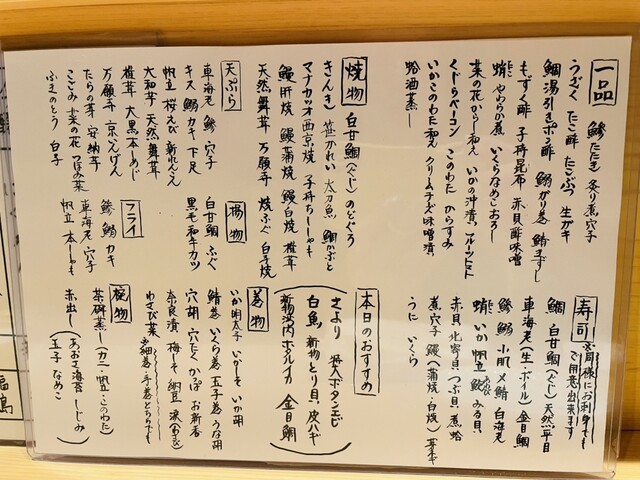 一品
鯵たたき 炙り煮穴子
うざく たこ酢 たこぶつ 生ガキ
鯛湯引きポン酢 鰯がり巻 鯖きずし
もずく酢 子持昆布 赤貝酢味噌
蛸やわらか煮 いくらなめこおろし
菜の花からし和え いかの沖漬 フルーツトマト
くじらベーコン このわた からすみ
いかこのわた和え クリームチーズ味噌漬
蛤酒蒸し
焼物
白甘鯛(ぐじ) のどぐろ
きんき 笹かれい 太刀魚 鯛かぶと
マナカツオ西京焼 子持ちししゃも
鰻肝焼 鰻蒲焼 鰻白焼 椎茸
天然舞茸 万願寺 焼ふぐ 白子焼
天ぷら
車海老 鯵 穴子
キス 鰯 カキ 下足
帆立 桜えび 新れんこん
大和芋 天然舞茸
椎茸 大黒本しめじ
万願寺 京いんげん
たらの芽 安納芋
こごみ 菜の花 つぼみ菜
ふきのとう 白子
揚物
白甘鯛 ふぐ
黒毛和牛カツ
フライ
鯵 鰯 カキ
車海老 穴子
帆立 本ししゃも
寿司
ご同様にお刺身でも
ご用意出来ます
鯛 白甘鯛(ぐじ) 天然平目
車海老(生・ボイル) 金目鯛
鯵 鰯 小肌 〆鯖 白海老
蛸 いか 帆立 鮑 みる貝
赤貝 北寄貝 つぶ貝 煮蛤
煮穴子 鰻(蒲焼・白焼)
うに いくら
本日のおすすめ
さより 活ボタンエビ
白魚 新物とり貝 皮ハギ
新物浜内ホタルイカ 金目鯛
巻物
いか明太子 いかしそ いか胡
鯖巻 いくら巻 玉子巻 うな胡
穴胡 穴たく かっぱ お新香
奈良漬 梅しそ 納豆 涙(わさび)
わさび菜 細巻・手巻どちらでも
椀物
茶碗蒸し(カニ・帆立・このわた)
赤出し(あおさ海苔 しじみ
玉子 なめこ)